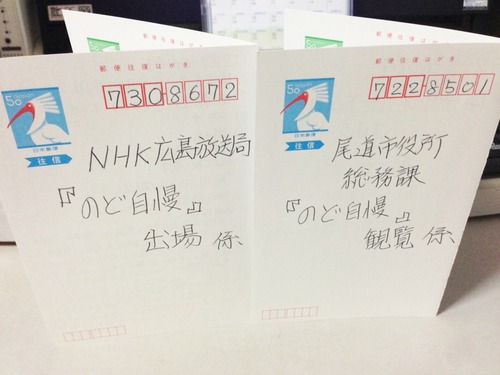 郵便往復はがき
50
日本郵便
往信
7308672
NHK広島放送局
『のど自慢』
出場 係
郵便往復はがき
50
日本郵便
往信
7228501
尾道市役所
総務課
『のど自慢』
観覧 係